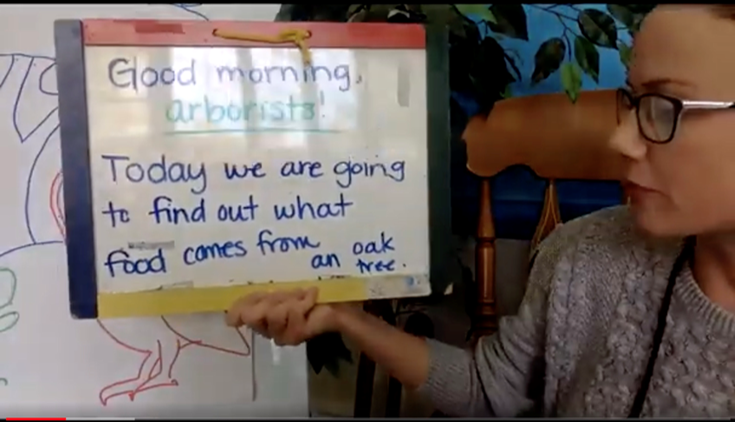 Good morning,
arborists!
Today we are going
to find out what
food comes from an oak
tree.